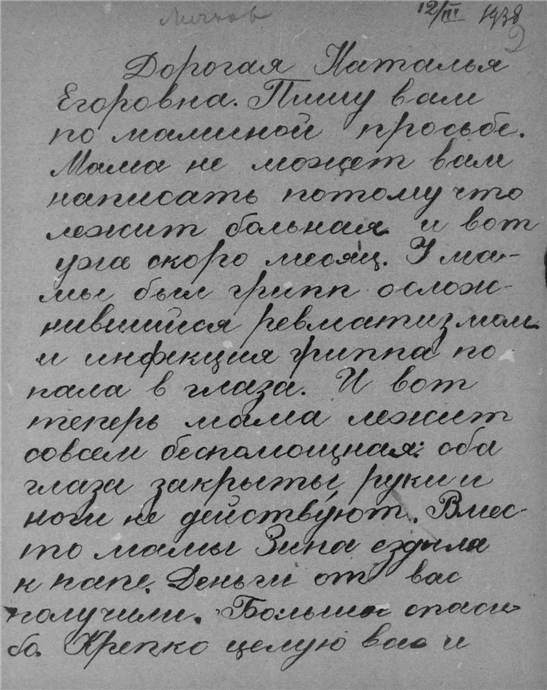 Личков
12/III 1938
2
Дорогая Наталья
Егоровна. Пишу вам
по маминой просьбе.
Мама не может вам
написать потому что
лежит больная и вот
ужа скоро месяц. У ма-
мы был грипп ослож-
нившийся ревматизмом
и инфекция гриппа по
пала в глаза. И вот
теперь мама лежит
совсем беспомощная: оба
глаза закрыты, руки и
ноги не действуют. Вмес-
то мамы Зина ездила
к папе. Деньги от вас
получили. Большое спаси-
бо. Крепко целую вас и